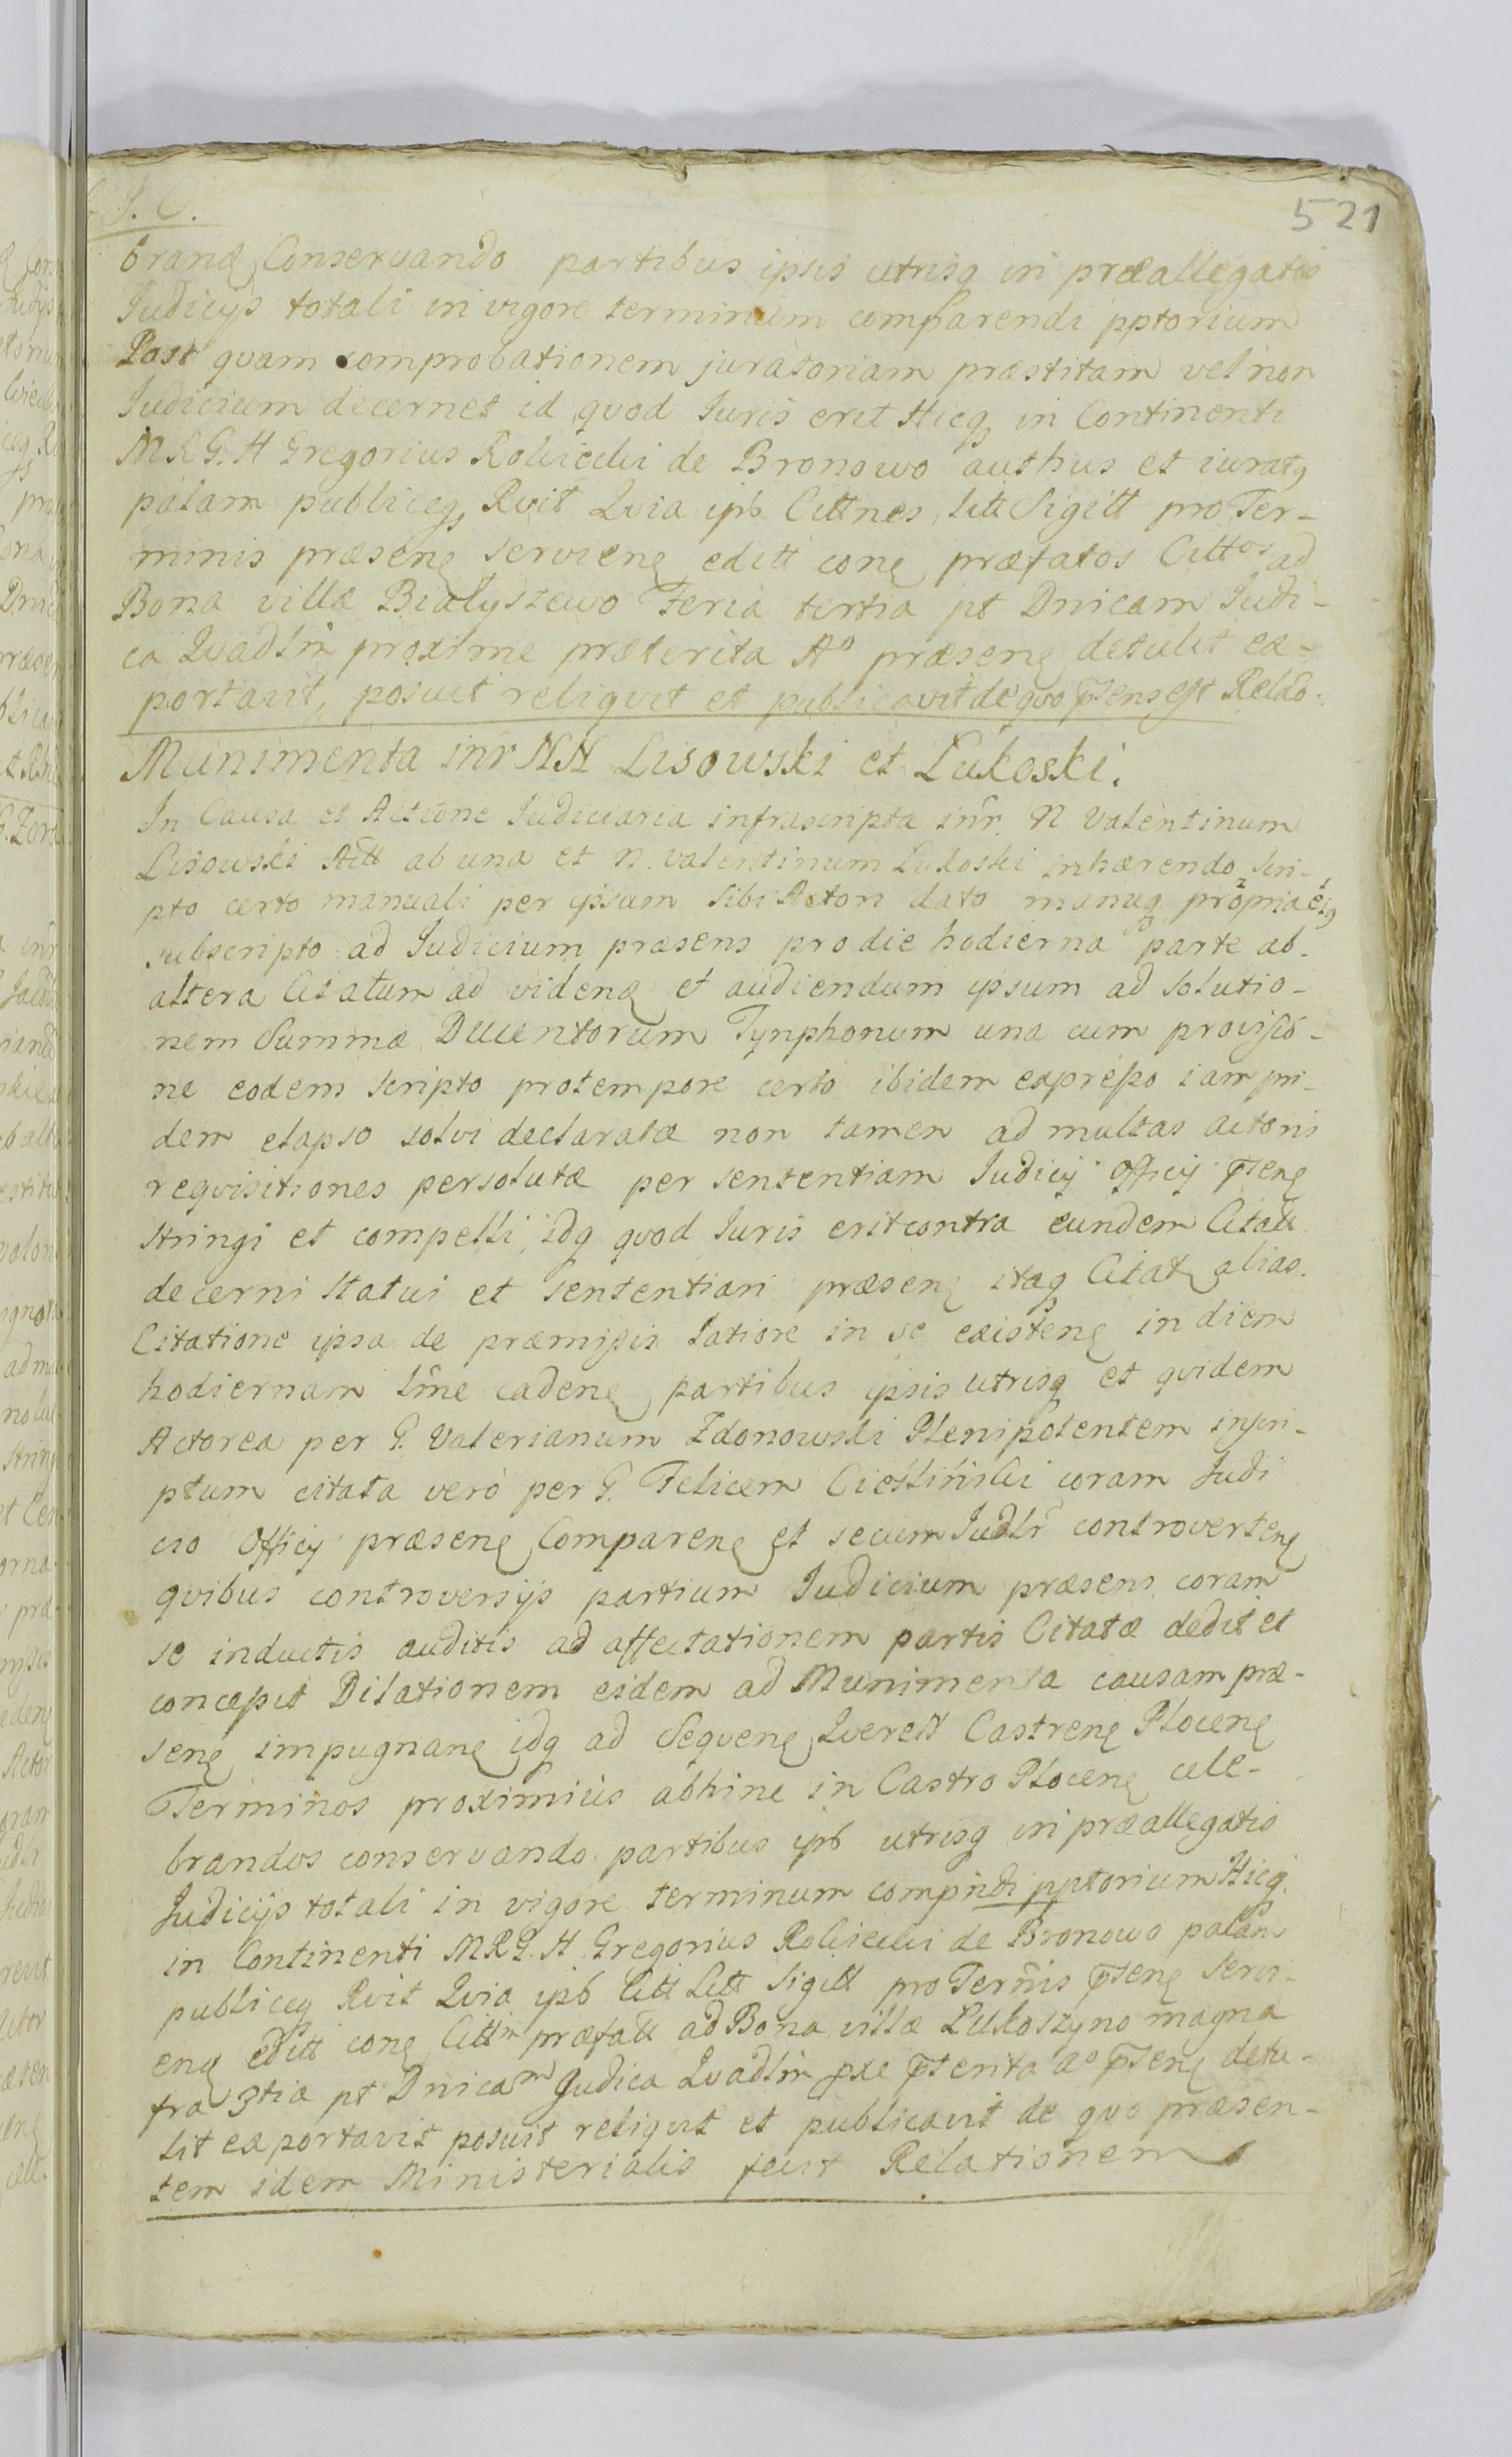 J. C.
521
brand Conservando partibus ipsis utrisq in præallegatis
Judicijs totali in vigore terminum comparendi pptorium
Post quam comprobationem juratoriam præstitam vel non
Judicium decernet id quod Juris erit Hicq in Continenti
MRG. H Gregorius Robiecki de Bronowo authus et iuratq
palam publiceq Rvit Qvia ipb Cittnes litt Sigitt pro Ter-
minis præsene serviene editt cone præfatos Cittos ad
Bona villæ Białyszewo Feria tertia pt Dnicam Judi-
ca Qvadlm proxime præterita Ao præsene detulit ex-
portavit, posuit reliqvit et publicavit de qvo pñsens est Relão.
Munimenta inr NN Lisowski et Lukoski.
In Causa et Actione Judiciaria infrascripta inr. N Valentinum
Lisowski Att ab una et N. Valentinum Lukoski inhærendo Scri-
pto certo manuali per ipsum sibi Actori dato manuq propria eiq
subscripto ad Judicium præsens pro die hodierna parte ab
altera Citatum ad videnđ et audiendum ipsum ad solutio-
nem Summæ Ducentorum Tynphonum una cum provisio-
ne eodem scripto pro tempore certo ibidem expresso iam pri-
dem elapso solvi declaratæ non tamen ad multas actoris
reqvisitiones persolutæ per sententiam Judicij Officij pñsene
stringi et compelli, idq qvod Juris erit contra eundem Citatt
decerni statui et sententiari præsene itaq Citate alias.
Citatione ipsa de præmissis latiore in se existene in diem
hodiernam lme cadene partibus ipsis utrisq et qvidem
Actorea per G. Valerianum Zdonowski Plenipotentem inscri-
ptum citata vero per G. Felicem Cieśliński coram Judi
cio Officij præsene Comparene et secum Judlr controvertene
qvibus controversijs partium Judicium præsens coram
se inductis auditis ad affectationem partis Citatæ dedit et
concepit Dilationem eidem ad Munimenta causam præ-
sene impugnane idq ad Seqvene Qverell Castrene Plocene
Terminos proximius abhinc in Castro Plocene cele-
brandos conservando partibus ipb utrisq in præallegatis
Judicijs totali in vigore terminum compndi pptorium Hicq
in Continenti MRG. H Gregorius Robiecki de Bronowo palam
publiceq Rvit Qvia ipb Citt Litt Sigitt pro Termis pñsene servi-
ene editt cone Cittm præfatt ad Bona villæ Lukoszyno magna
fra 3tia pt Dnicam Judica Qvadlm pxe pñterita ao pñsene detu-
lit exportavit posuit reliqvit et publicavit de qvo præsen-
tem idem Ministerialis fecit Relationem